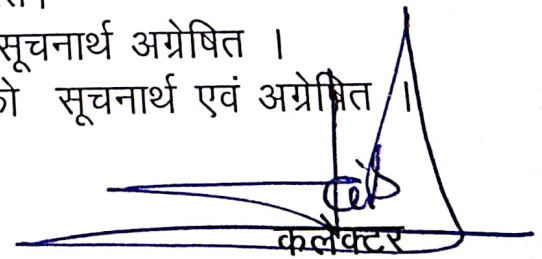 सूचनार्थ अग्रेषित ।
सूचनार्थ एवं अग्रेषित ।
कलेक्टर